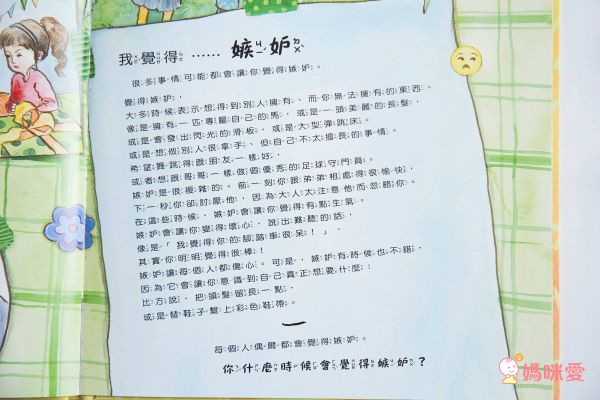 我覺得…… 嫉妒
很多事情可能都會讓你覺得嫉妒。
覺得嫉妒，
大多時候表示想得到別人擁有、而你無法擁有的東西。
像是擁有一匹專屬自己的馬，或是一頭美麗的長髮，
或是會發出閃光的滑板，或是大型彈跳床。
或是想做別人很拿手、但自己不太擅長的事情。
希望舞跳得跟朋友一樣好，
或者想跟哥哥一樣做個優秀的足球守門員。
嫉妒是很複雜的。前一刻你跟弟弟相處得很愉快，
下一秒你卻討厭他，因為大人太注意他而忽略你。
在這些時候，嫉妒會讓你覺得有點生氣。
嫉妒會讓你變得壞心，說出難聽的話，
像是「我覺得你的腳踏車很呆！」，
其實你明明覺得很棒！
嫉妒讓每個人都傷心。可是，嫉妒有時候也不錯，
因為它會讓你意識到自己真正想要什麼；
比方說，把頭髮留長一點，
或是替鞋子繫上彩色鞋帶。
每個人偶爾都會覺得嫉妒。
你什麼時候會覺得嫉妒？
媽咪愛